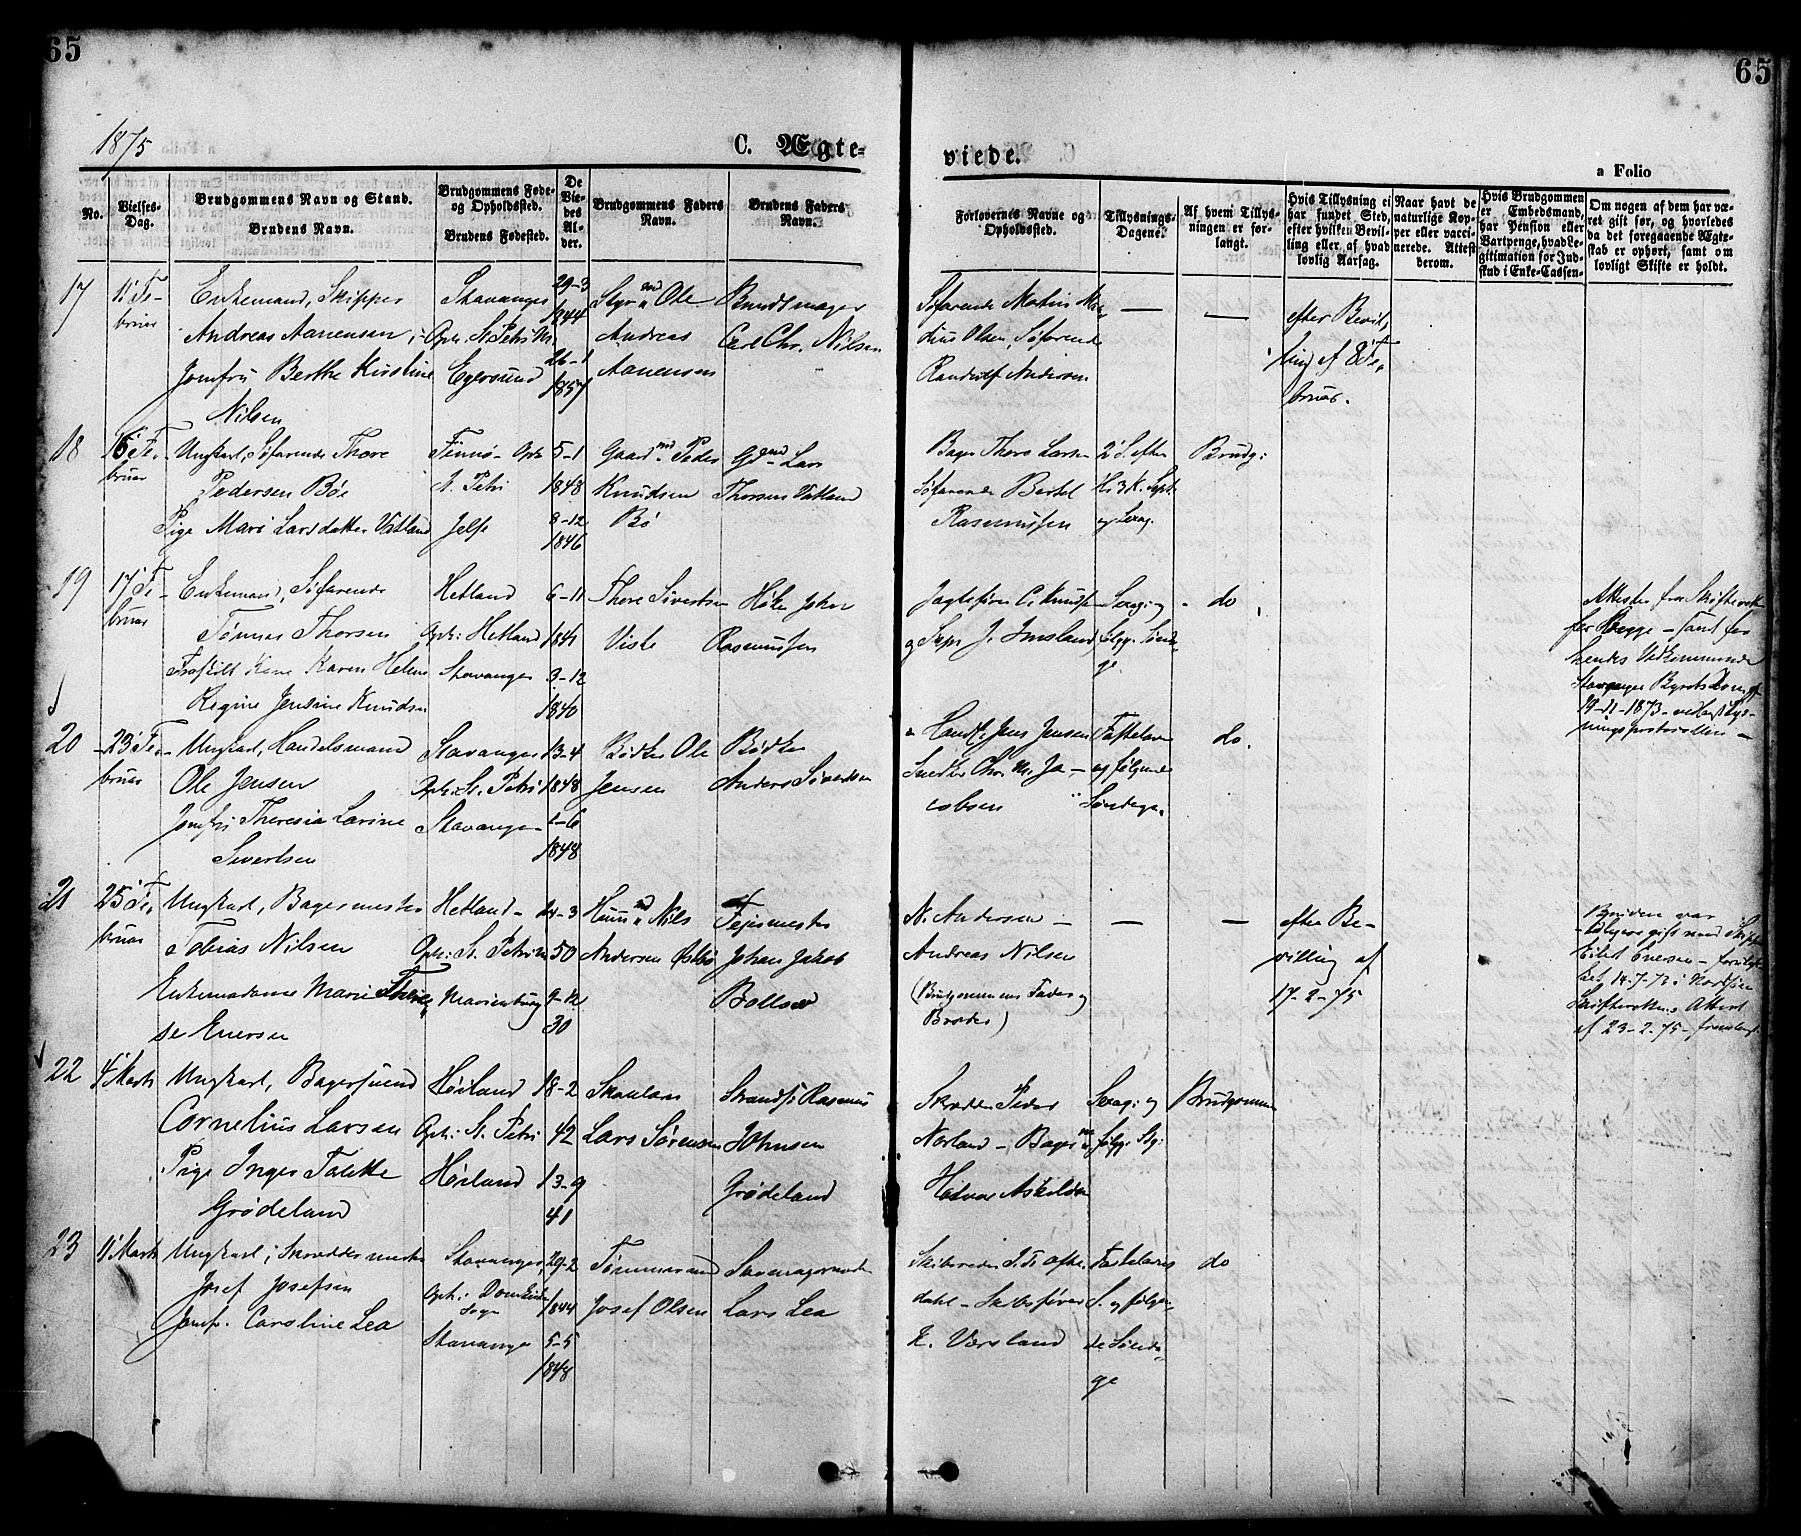 65
65
1875
C. Ægte-
viede.
a Folio
No.
Vielses-
Dag.
Brudgommens Navn og Stand.
Brudens Navn.
Brudgommens Føde-
og Opholdssted.
Brudens Fødested.
De
Vie-
des
Al-
der.
Brudgommens Faders
Navn.
Brudens Faders
Navn.
Forlovernes Navne og
Opholdssted.
Tillysnings-
Dagene.
Af hvem Tillys-
ningen er for-
langt.
Hvis Tillysning ei
har fundet Sted,
efter hvilken Bevil-
ling eller af hvad
lovlig Aarsag.
Naar havt de
naturlige Kop-
per eller vacci-
nerede. Attest
derom.
Hvis Brudgommen
er Embedsmand,
har Pension eller
Vartpenge, hvad Le-
gitimation for Ind-
skud i Enke-Cassen.
Om nogen af dem har væ-
ret gift før, og hvorledes
da det foregaaende Ægte-
skab er ophørt, samt om
lovligt Skifte er holdt.
17
11 Fe-
bruar
Enkemand, Skipper
Andreas Aanensen,
Jomfru Berthe Kirstine
Nilsen
Stavanger
Oph. St. Petri M.
Egersund
29-3
1844
26-1
1857
Styrmd Ole
Andreas
Aanensen
Bundtmager
Carl Chr. Nilsen
Søfarende Mathias
Olsen, Søfarende
Randulf Andersen
—
—
efter Bevil-
ling af 8 Fe-
bruar.
18
16 Fe-
bruar
Ungkarl, Søfarende Thore
Pedersen Bøe
Pige Mari Larsdatter Vatland
Finnø Oph
St. Petri
Jelse
5-1
1848
8-12
1846
Gaardmd Peder
Knudsen
Bø
Gdmd Lars
Thorsen Vatland
Bager Thore Larsen
Søfarende Bertel
Rasmussen
2 S. efter
Hl 3 K. Sept.
og Sexag.
Brudg:
19
17 Fe-
bruar
Enkemand, Søfarende
Tønnes Thorsen
Fraskilt Kone Karen Helene
Regine Jensine Knudsen
Hetland
Oph: Hetland
Stavanger
6-11
1841
3-12
1840
Thore Sivertsen
Viste
Høker John
Rasmussen
Jagtefører C. Knudsen
og J. Imsland
Sexag: og
følgg. Sønda-
ge
do
Attester fra Skifteretten
for Begge — samt for
hendes Vedkommende
Stavanger Byretsdom af
19-11-1873 — vedlagt Lys-
ningsprotocollen —
20
23 Fe-
bruar
Ungkarl, Handelsmand
Ole Jensen
Jomfru Theresia Larine
Sivertsen
Stavanger
Oph: St. Petri
Stavanger
13-4
1848
1-6
1848
Bødker Ole
Jensen
Bødker
Anders Sivertsen
Handl. Jens Jensen
Snedker Chr. M. Ja-
cobsen
Fastelavn
og følgende
Søndage.
do.
21
25 Fe-
bruar
Ungkarl, Bagermester
Tobias Nilsen
Enkemadame Marie There-
se Eversen
Hetland
Oph: St. Petri M
Marienburg
14-3
50
9-12
30
Huusmd Nils
Andersen Østbø
Fejermester
Johan Jakob
N. Andersen —
Andreas Nilsen
(Brudgommens Fader og
Broder)
—
—
efter Be-
villing af
17-2-75
Bruden var
tidligere gift med Skipper
Eilert Eversen —
14-7-72 i Nordsjøen
Skifterettens Attest
af 23-2-75 — fremlagt
22
4 Marts
Ungkarl, Bagersvend
Cornelius Larsen
Pige Inger Talette
Grødeland
Høiland
Oph: St. Petri
Høiland
18-2
42
13-9
41
Skoelærer
Lars Sørensen
Strands: Rasmus
Johnsen
Grødeland
Skrædder Peder
Norland — Bager
Halvor Askildsen
Sexag: og
følgg: Sdg:
Brudgommen
23
11 Marts
Ungkarl, Skræddermester
Josef Josefsen
Jomfr. Caroline Lea
Stavanger,
Oph: Domkirke
Sogn
Stavanger
29-2
1844
5-5
1848
Tømmermand
Josef Olsen
Lars Lea
Skibsreder
dahl — Skibsfører
K.Værsland
Fastelavns
S. og følgen-
de Sønda-
ge
do